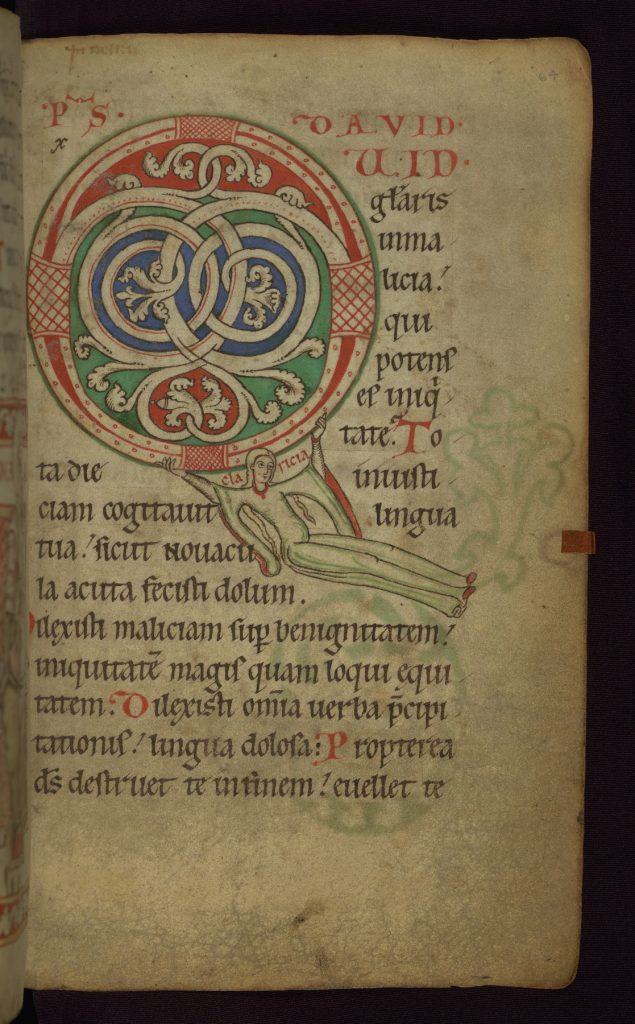 P̄S· DAVID·
x UID·
gl̄aris
inma
licia!
qui
potens
es iniq̇
tate. To
ta die iniusti
ciam cogitauit lingua
tua! sicut nouacu
la acuta fecisti dolum.
Dilexisti maliciam sup̄ benignitatem!
iniquitatē magis quam loqui equi
tatem: Dilexisti om̄ia uerba p̄cipi
tationis! lingua dolosa: Propterea
ds̄ destruet te infinem! euellet te
cla ricia
64